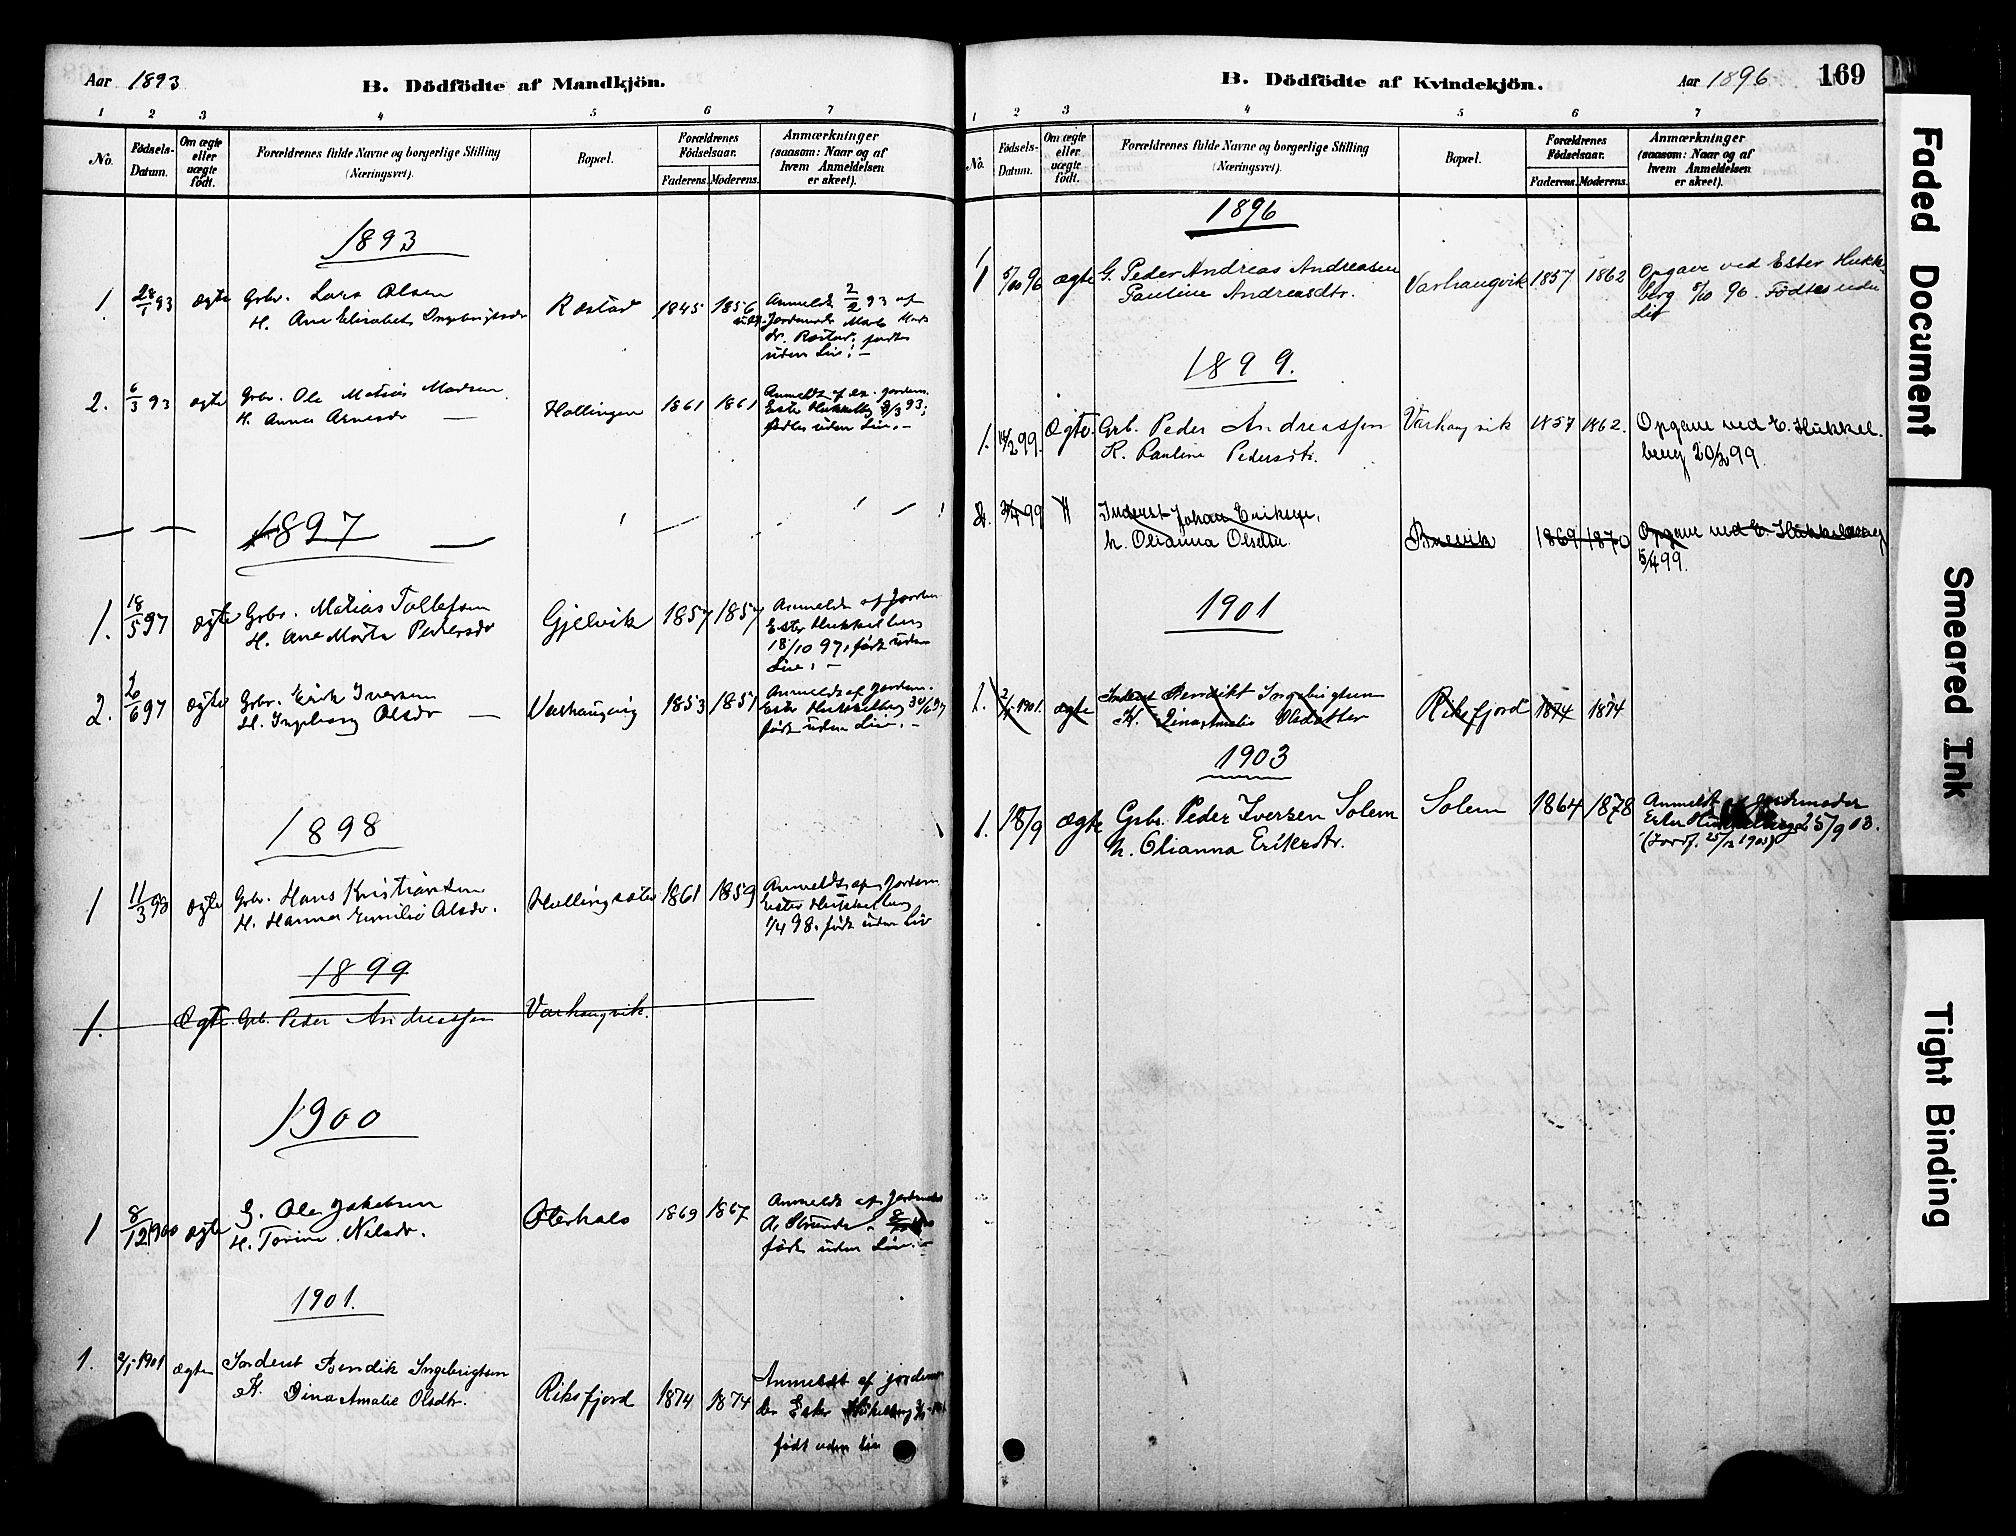 Aar 1893
B. Dödfödte af Mandkjön.
1 2 3 4 5 6 7
No.
Födsels-Datum.
Om ægte eller uægte födt.
Forældrenes fulde Navne og borgerlige Stilling
(Næringsvei).
Bopæl.
Forældrenes Födselsaar.
Faderens. Moderens.
Anmærkninger
(saasom: Naar og af
hvem Anmeldelsen
er skeet).
1893
1. 28/1 93 ægte Grbr. Lars Olsen Røstad 1845 1856 Anmeldt 2/2 93 af
H. Ane Elisabet Ingebrigtsdr
Røstad, fødte
uden Liv. —
2. 6/3 93 ægte Grbr. Ole Matias Madsen Hollingen 1861 1861 Anmeldt af ex. jordem.
H. Anna Arnesdr — Ester Hukkelberg 8/3 93;
fødtes uden Liv. —
1897
1. 18/5 97 ægte Grbr. Matias Tollefsen Gjelvik 1857 1857 Anmeldt af Jordem
H. Ane Marta Pedersdr Ester Hukkelberg
18/10 97, født uden
Liv. —
2. 2/6 97 ægte Grbr. Erik Iversen Varhaugvig 1853 1851 Anmeldt af Jordem.
H. Ingeborg Olsdr — Ester Hukkelberg 30/6 97
født uden Liv. —
1898
1 11/3 98 ægte Grbr. Hans Kristiansen Hollingsæter 1861 1859 Anmeldt af Jordem.
H. Hanna Emilie Olsdr. Ester Hukkelberg
1/4 98. født uden Liv
1899
1. Ægte. Grb. Peder Andreassen Varhaugvik.
1900
1 8/12 1900 ægte G. Ole Jakobsen Oterhals 1869 1867 Anmeldt af Jordmoder
H. Torine Nilsdr.
født uden Liv. —
1901.
1. 2/1 1901 ægte Inderst Bendik Ingebrigtsen Riksfjord 1874 1874 Anmeldt af jordmo-
K. Dina Amalie Olsdtr. der Ester Hukelberg
født uden Liv
B. Dödfödte af Kvindekjön.
Aar 1896 169
1 2 3 4 5 6 7
No.
Födsels-Datum.
Om ægte eller uægte födt.
Forældrenes fulde Navne og borgerlige Stilling
(Næringsvei).
Bopæl.
Forældrenes Födselsaar.
Faderens. Moderens.
Anmærkninger
(saasom: Naar og af
hvem Anmeldelsen
er skeet).
1896
1 5/10 96 ægte G. Peder Andreas Andreasen Varhaugvik 1857 1862 Opgave ved Ester Hukkel-
Pauline Andreasdtr. berg 5/10 96. Fødtes uden
Liv
1899.
1. 14/2 99. Ægte. Grb. Peder Andreassen Varhaugvik 1857 1862. Opgave ved E. Hukkel-
K. Pauline Pedersdtr. berg 20/2 99.
2. 99 Inderst Johan Eriksen,
h. Olianna Olsdtr. 1869 1870 Opgave ved E. Hukkelberg
5/4 99.
1901
1. 2/1 1901. ægte Inderst Bendikt Ingebrigtsen Riksfjord 1874 1874
K. Dina Amalie Olsdatter
1903
1. 18/9 Ægte Grbr. Peder Iversen Solem Solem 1864 1878 Anmeldt af Jordemoder
h. Olianna Eriksdtr. Ester Hukkelberg 25/9 03.
(Jordf. 25/12 1903)
Faded Document
Smeared Ink
Tight Binding